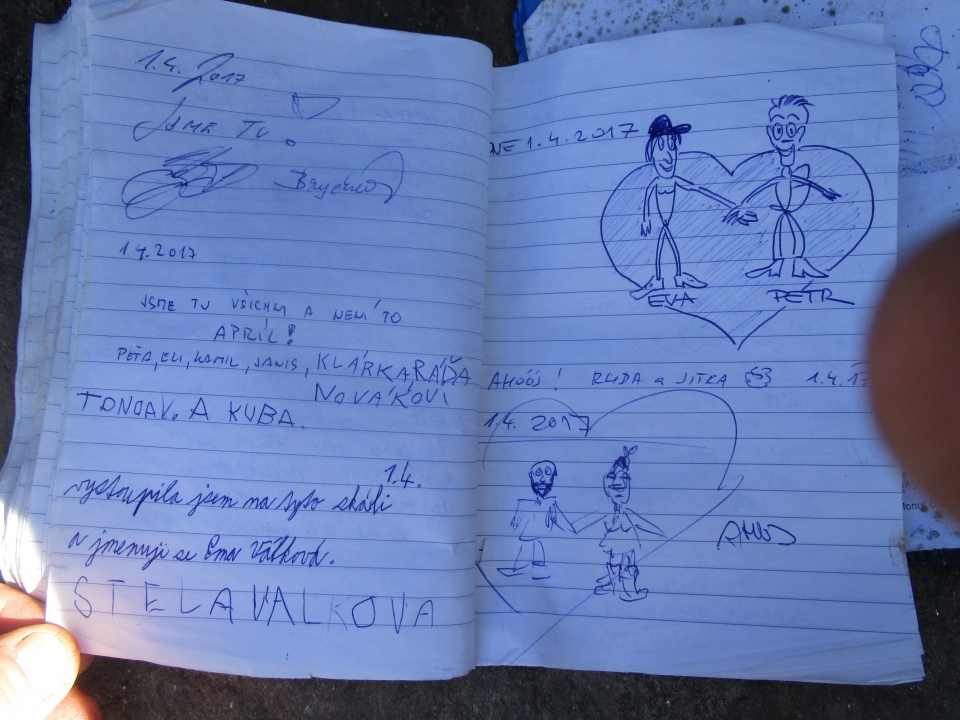 1.4. 2017
JSME TU
1.4.2017
JSME TU VŠICHNI A NENÍ TO
APRÍL!
PÉŤA, ELI, KAMIL, JANIS, KLÁRKA RÁĎA
NOVÁKOVI
TONDA V. A KUBA.
1.4.
vystoupila jsem na tyto skáli
a jmenuji se Ema Válková.
STELA VALKOVA
NE 1.4.2017
EVA PETR
AHÓÓJ! RUDA a JITKA 1.4.17
1.4. 2017
AHOJ